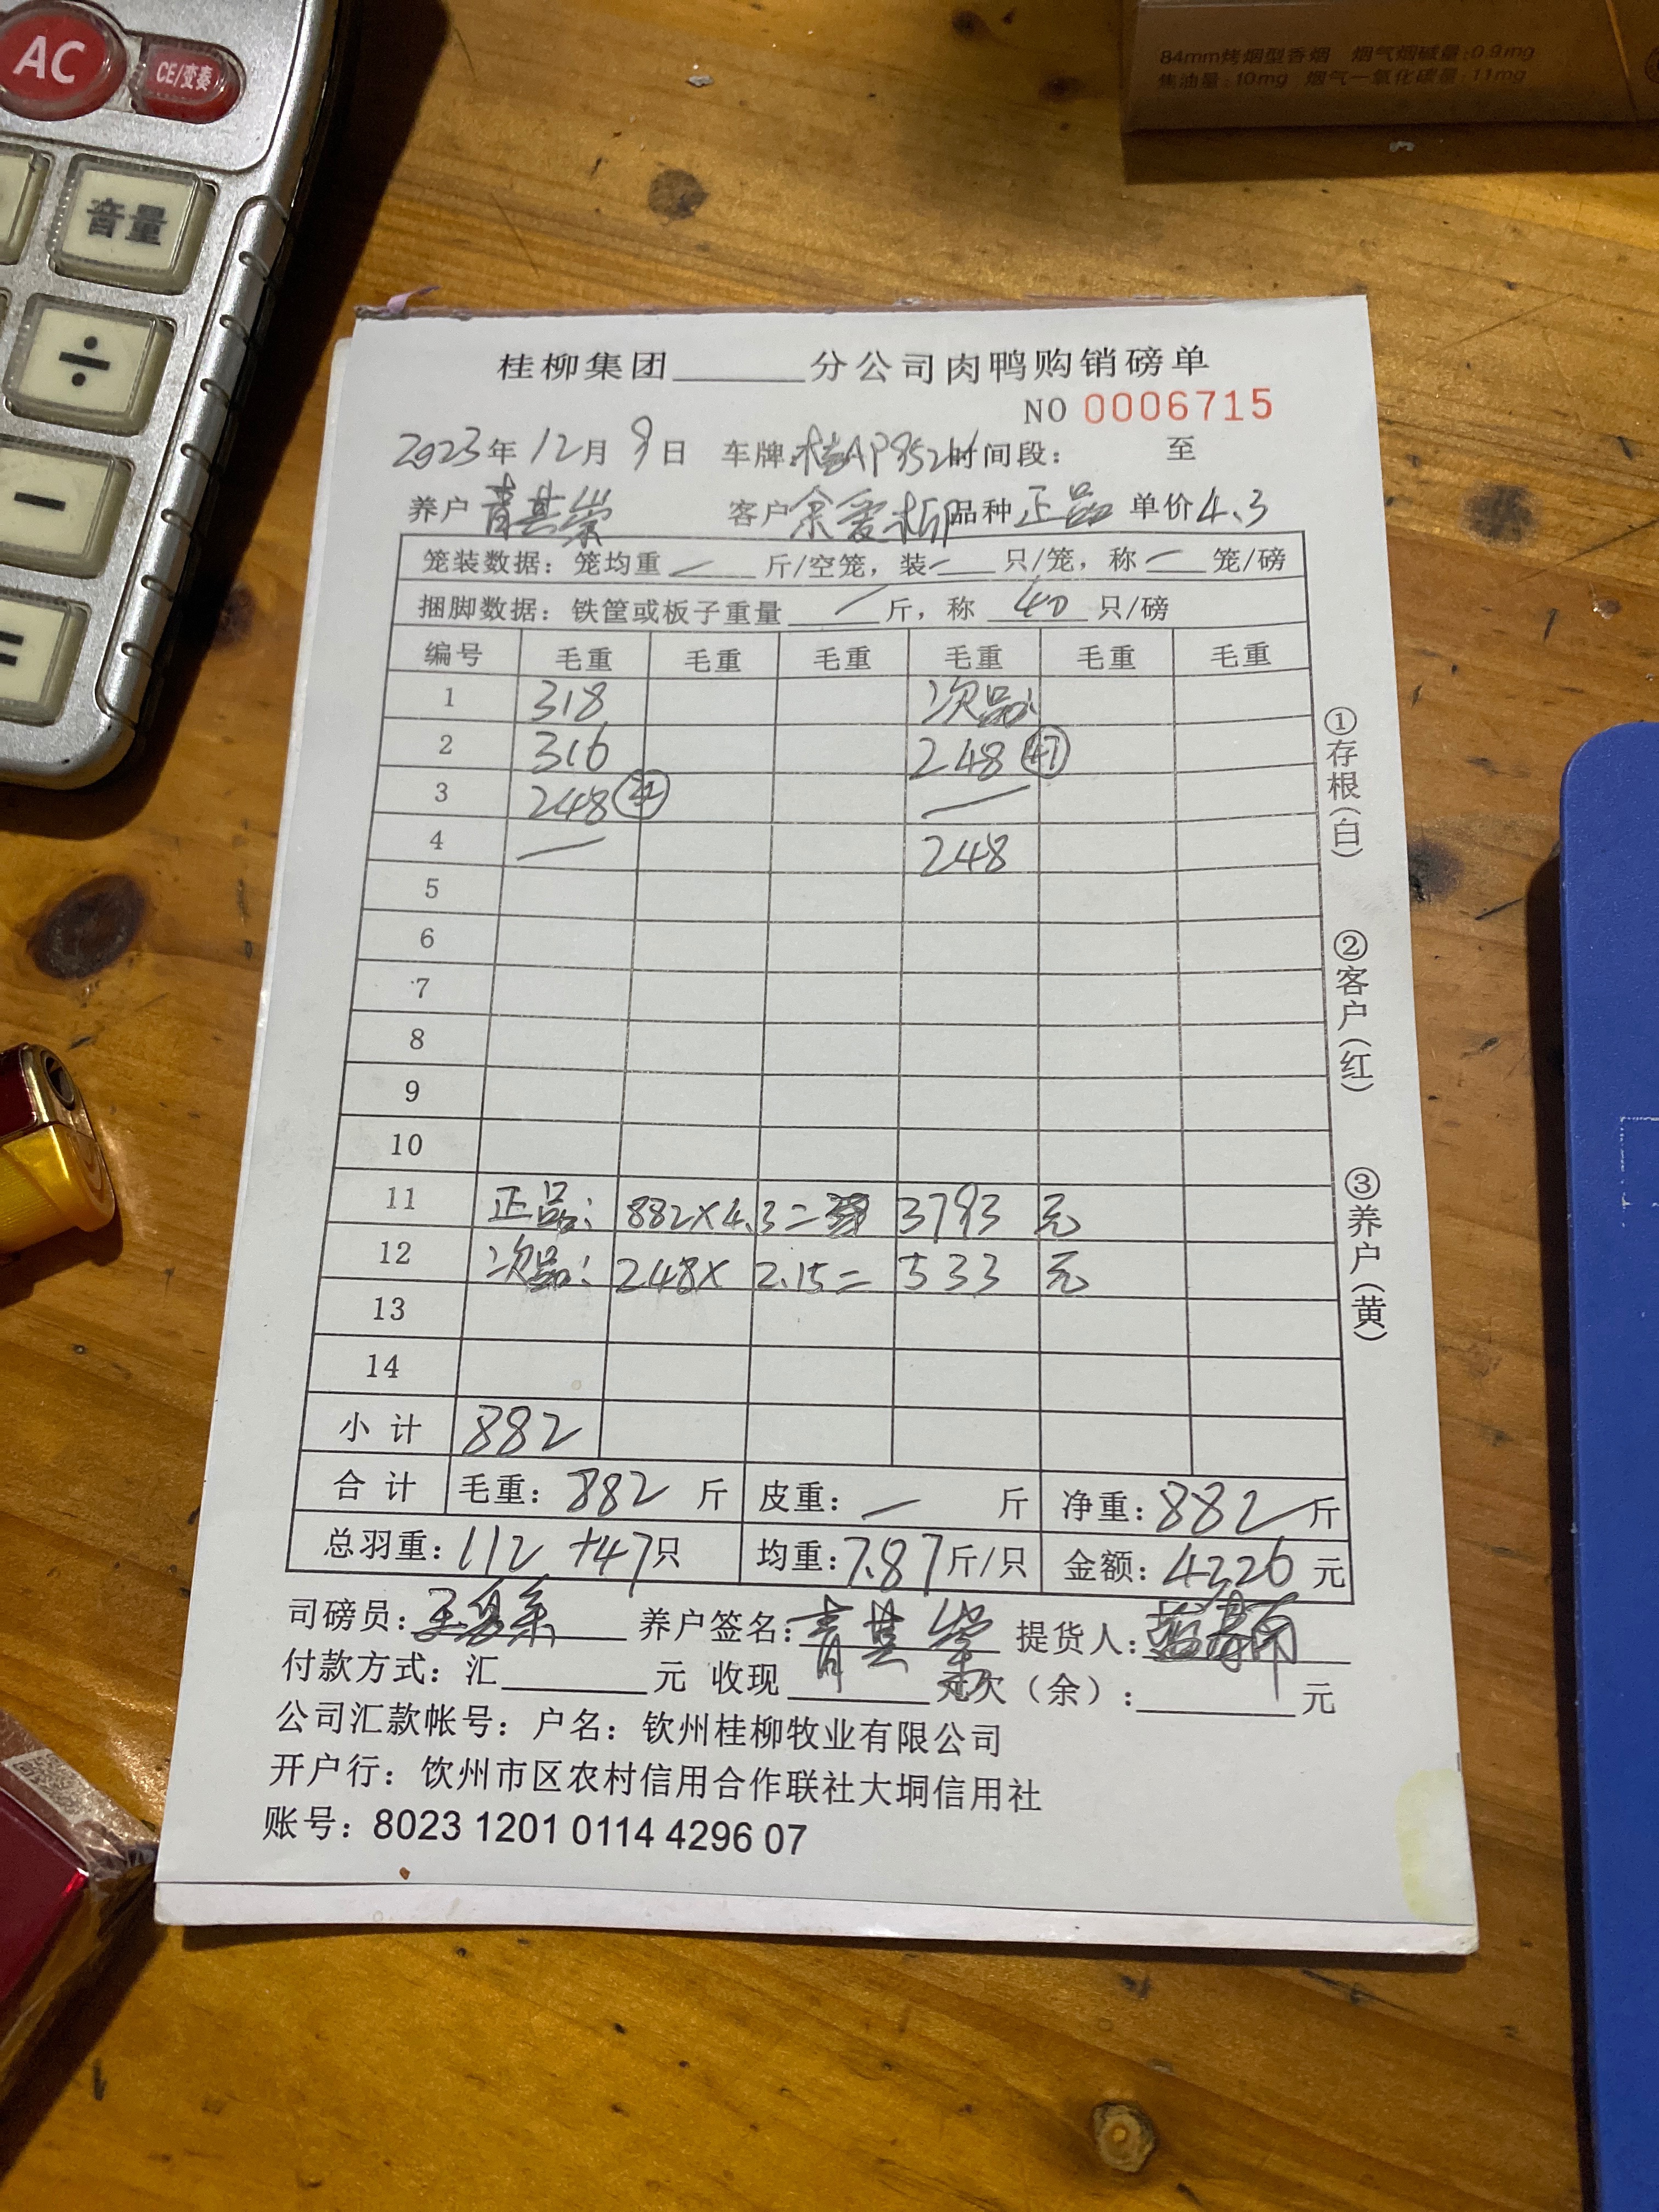 AC
CE/变奏
音量
÷
−
=
84mm烤烟型香烟 烟气烟碱量:0.9mg
焦油量:10mg 烟气一氧化碳量:11mg
桂柳集团______分公司肉鸭购销磅单
NO 0006715
2023年12月9日 车牌:桂AP952 时间段: 至
养户 青其崇 客户 余爱 品种 正品 单价 4.3
笼装数据:笼均重 — 斤/空笼,装 — 只/笼,称 — 笼/磅
捆脚数据:铁筐或板子重量 — 斤,称 40 只/磅
编号 毛重 毛重 毛重 毛重 毛重 毛重
1 318 次品:
2 316 248 47
3 248 —
4 — 248
5
6
7
8
9
10
11 正品: 882×4.3= 3793 元
12 次品: 248×2.15= 533 元
13
14
小计 882
合计 毛重: 882 斤 皮重: — 斤 净重: 882 斤
总羽重: 112 +47 只 均重: 7.87 斤/只 金额: 4226 元
司磅员: 养户签名: 青其崇 提货人:
付款方式:汇______元 收现______元欠(余):______元
公司汇款帐号:户名:钦州桂柳牧业有限公司
开户行:钦州市区农村信用合作联社大垌信用社
账号:8023 1201 0114 4296 07
①存根(白)
②客户(红)
③养户(黄)